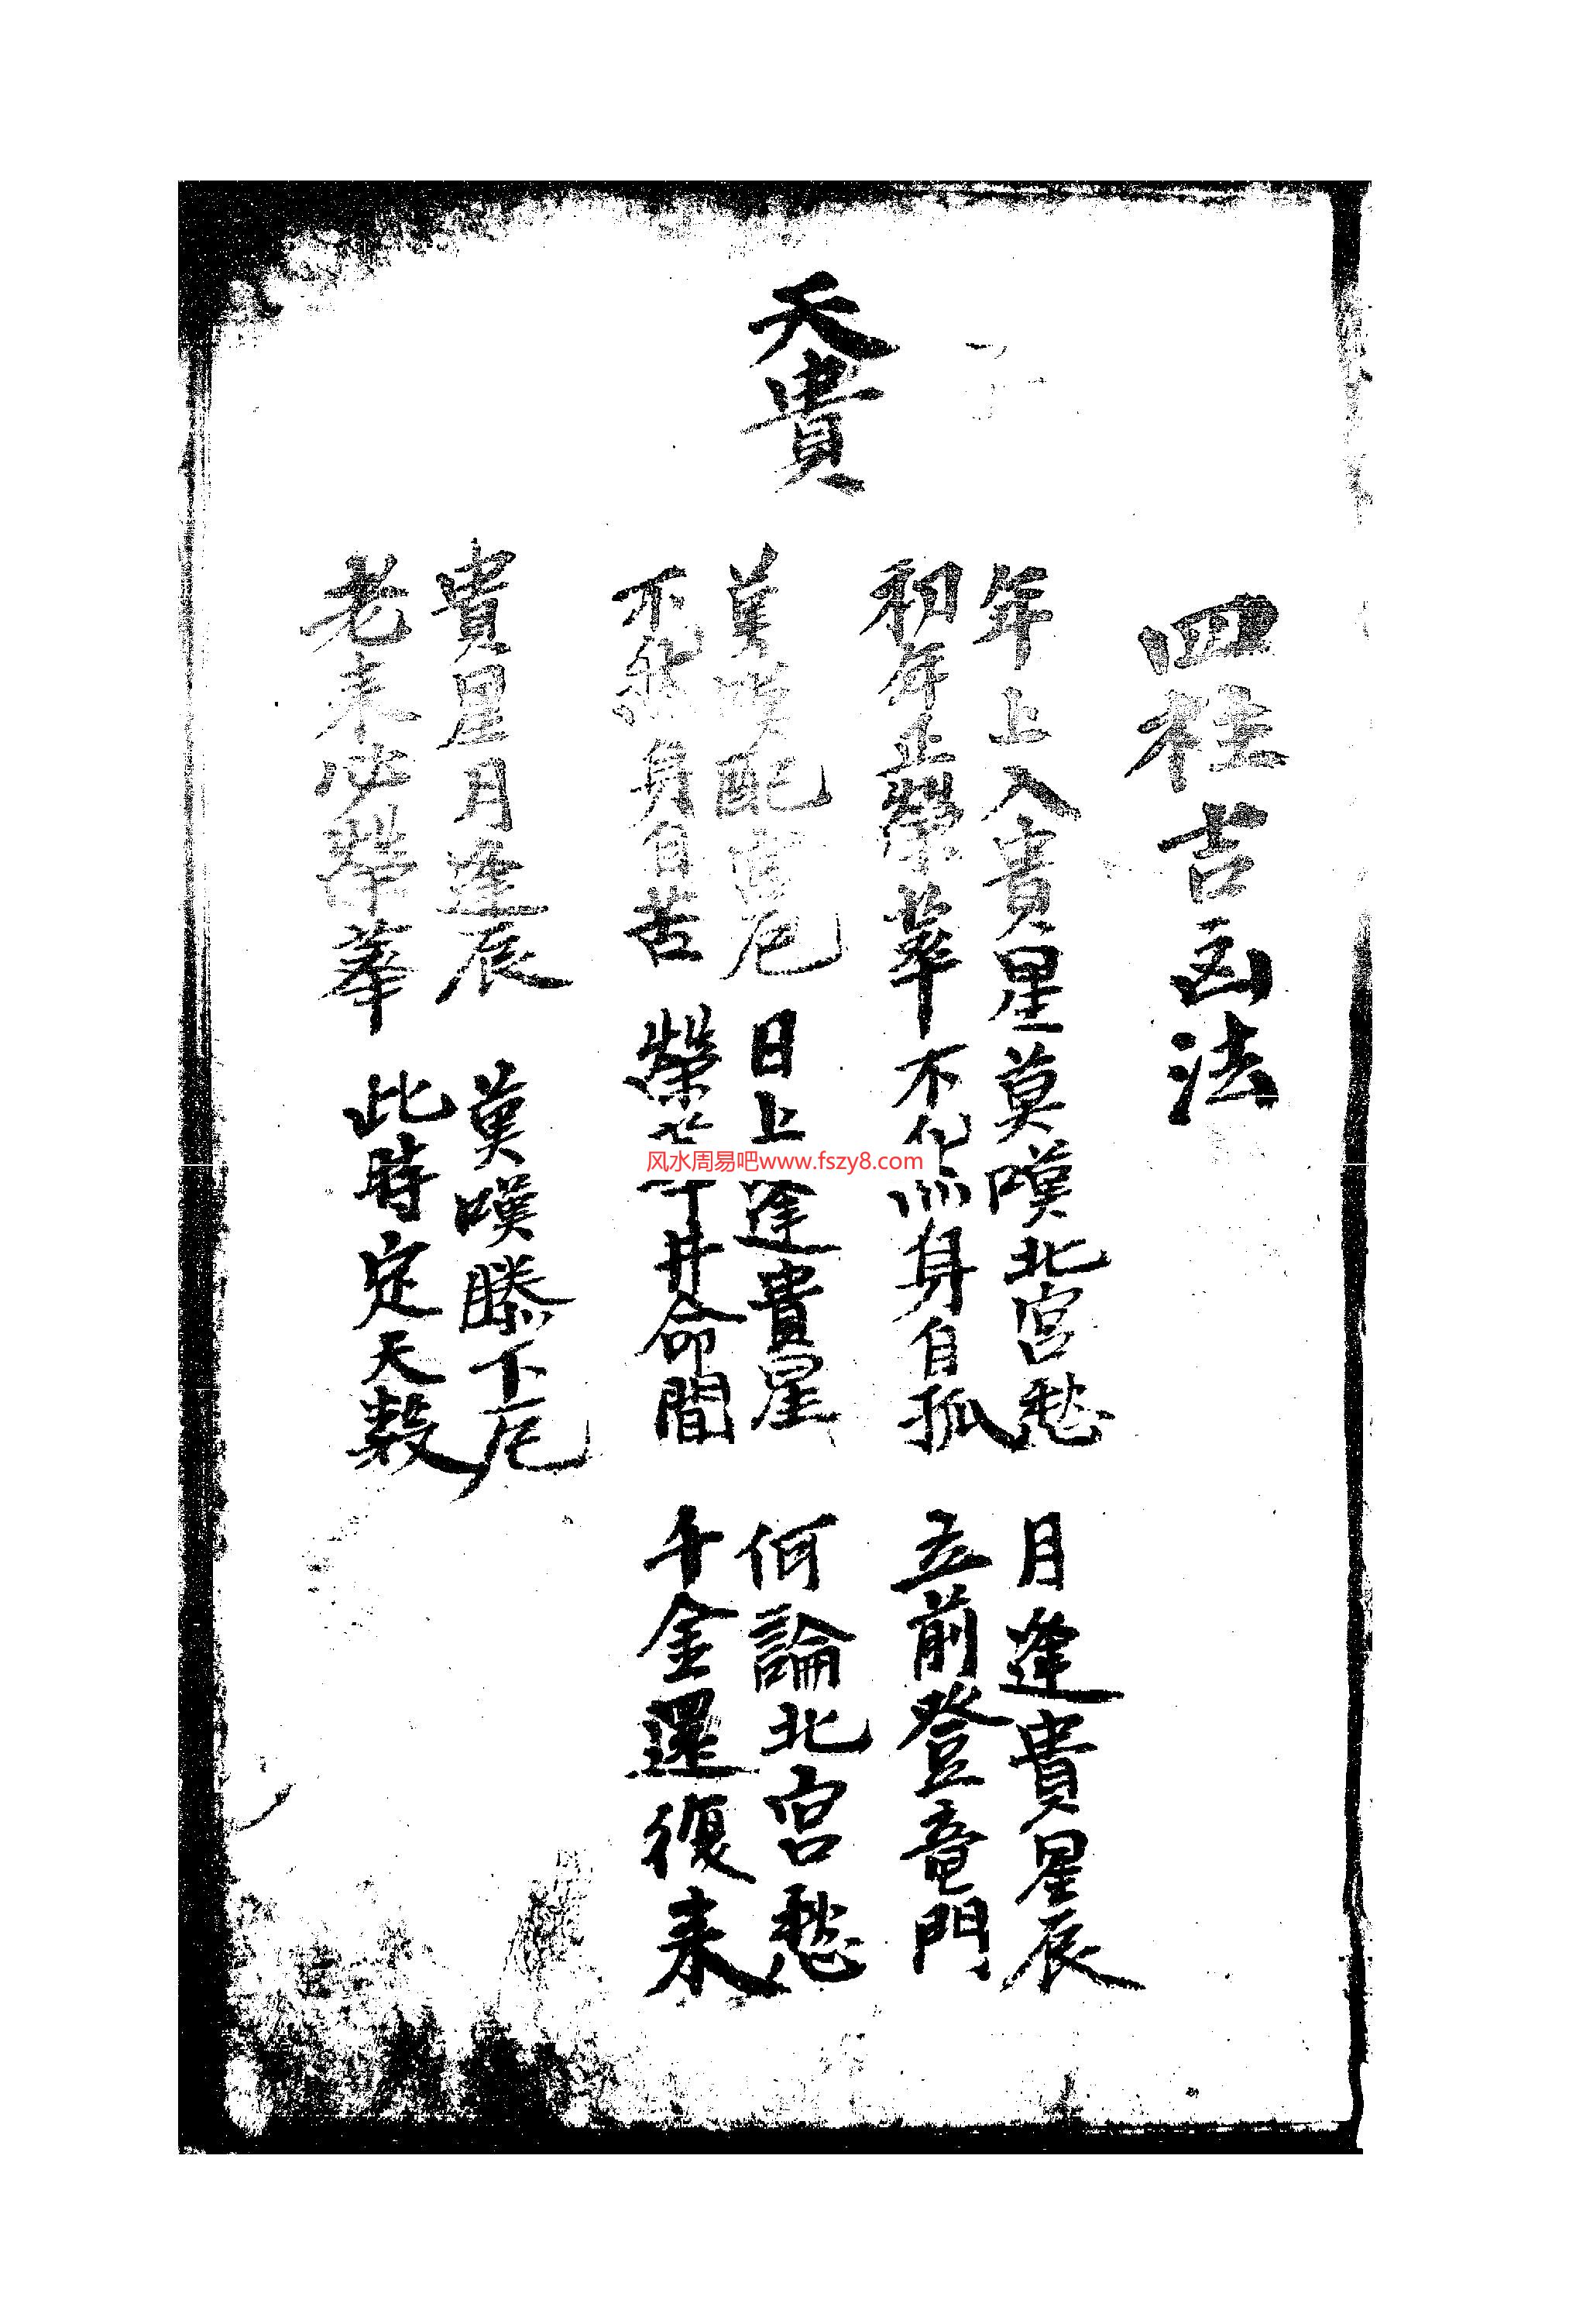 四柱吉凶法
天貴
年上入貴星 莫嘆北宮愁 月逢貴星辰
初年止榮華 不然身自孤 五前登竜門
莫嘆配宮厄 日上逢貴星 何論北宮愁
不然身自苦 榮華井命間 千金還復来
貴星月逢辰 莫嘆膝下厄
老来必榮華 此時定天数
风水周易吧www.fszy8.com